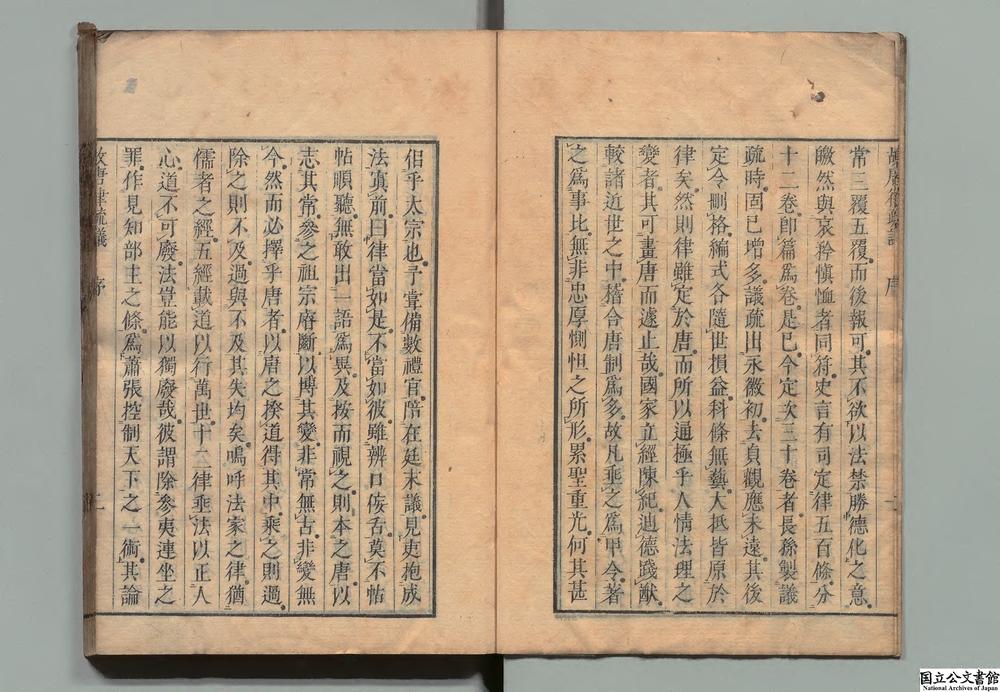 常三覆五覆而後報可其不欲以法禁勝德化之意
皦然與哀矜愼恤者同符史言有司定律五百條分
十二卷卽篇爲卷是已今定次三十卷者長孫製議
疏時固已增多議疏出永徽初去貞觀應未遠其後
定令刪格編式各隨世損益科條無藝大抵皆原於
律矣然則律雖定於唐而所以通極乎人情法理之
變者其可畫唐而遽止哉國家立經陳紀迪德踐猷
較諸近世之中稽合唐制爲多故凡乘之爲甲令著
之爲事比無非忠厚惻怛之所形累聖重光何其甚
佀乎太宗也予嘗備數禮官陪在廷末議見吏抱成
法寘前曰律當如是不當如彼雖辨口佞舌莫不帖
帖順聽無敢出一語爲異及按而視之則本之唐以
志其常參之祖宗睿斷以博其變非常無古非變無
今然而必擇乎唐者以唐之揆道得其中乘之則過
除之則不及過與不及其失均矣嗚呼法家之律猶
儒者之經五經載道以行萬世十二律垂法以正人
心道不可廢法豈能以獨廢哉彼謂除參夷連坐之
罪作見知部主之條爲蕭張控制天下之一術其論
故唐律疏議 序 二
国立公文書館
National Archives of Japan